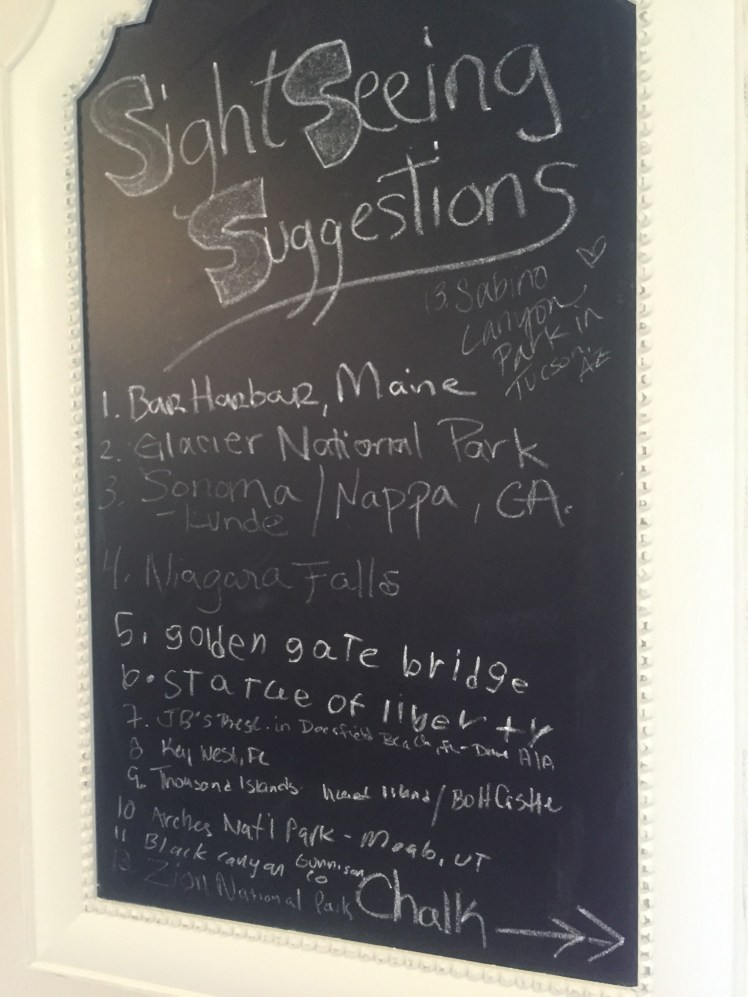 SightSeeing
Suggestions
13. Sabino
Canyon
Park in
Tucson, AZ
1. Bar Harbar, Maine
2. Glacier National Park
3. Sonoma / Nappa, CA.
- Kunde
4. Niagara Falls
5. golden gate bridge
6. statue of liberty
7. JB's in Deerfield Beach, FL - A1A
8 Key West, FL
9. Thousand Islands Heart Island / Bolt Castle
10 Arches Nat'l Park - Moab, UT
11 Black canyon Gunnison
CO
12 Zion National Park
Chalk